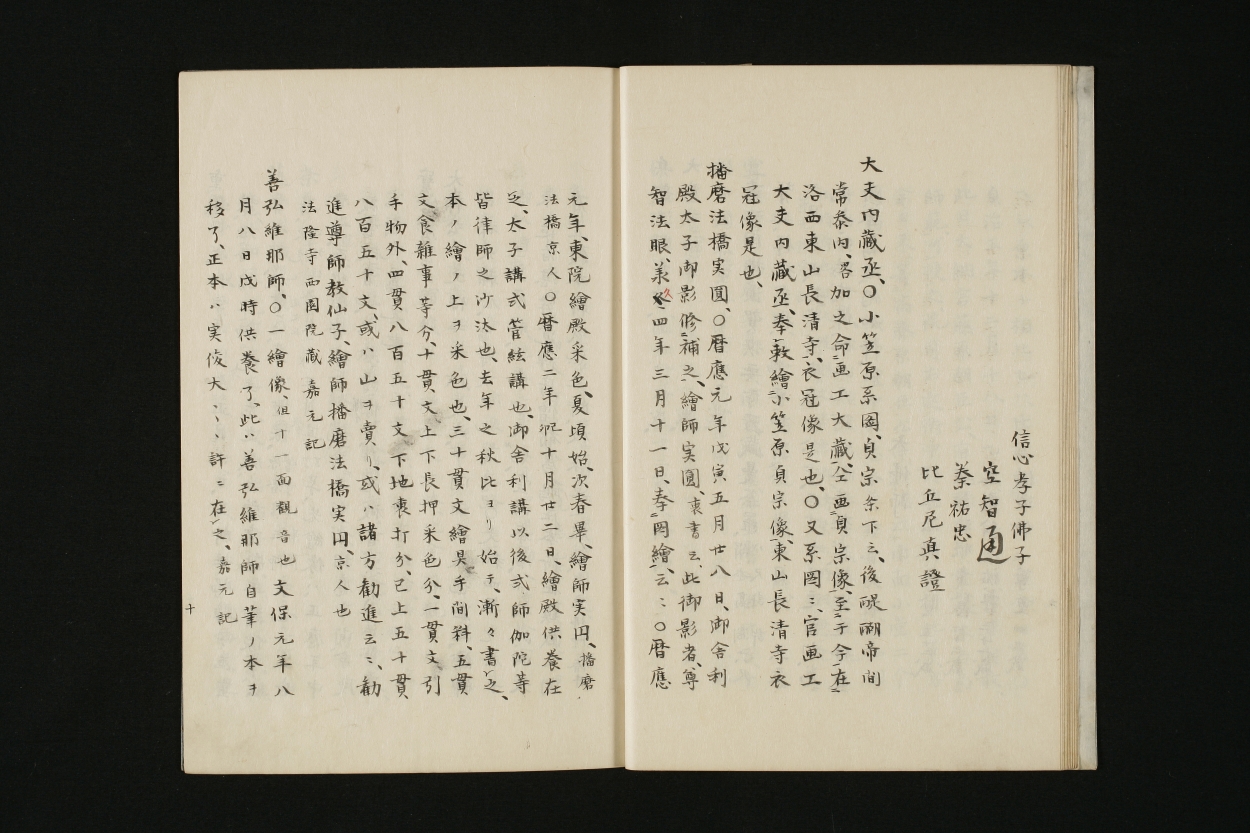 信心孝子佛子
空智通
秦祐忠
比丘尼真證
大夫内藏丞、〇小笠原系図、貞宗条下云、後醍醐帝間
常泰内、畧加之命画工大藏、仝画貞宗像、至于今在
洛西東山長清寺、衣冠像是也、〇又系図云、官画工
大夫内藏丞、奉敕繪小笠原貞宗像、東山長清寺衣
冠像是也、
播磨法橋実圓、〇暦應元年戊寅五月廿八日、御舎利
殿太子御影修補之、繪師実圓、裏書云、此御影者、尊
智法眼、承久四年三月十一日、奉図繪、云々、〇暦應
元年、東院繪殿采色、夏頃始、次春畢、繪師実円、播磨
法橋京人〇暦應二年 十月廿二日、繪殿供養在
之、太子講式管絃講也、御舎利講以後式師伽陀等
皆律師之沙汰也、去年之秋比ヨリ始テ、漸々書之、
本ノ繪ノ上ヲ采色也、三十貫文繪具手間料、五貫
文食雜事等分、十貫文上下長押采色分、一貫文、引
手物外、四貫八百五十文、下地裏打分、已上五十貫
八百五十文、或ハ山ヲ賣リ、或ハ諸方勸進云々、勸
進尊師教仙子、繪師播磨法橋実円、京人也
法隆寺西園院藏 嘉元記
善弘維那師、〇一繪像、但十一面觀音也 文保元年八
月八日戊時供養了、此ハ善弘維那師自筆ノ本ヲ
移了、正本ハ実俊大々許ニ在之、嘉元記
十